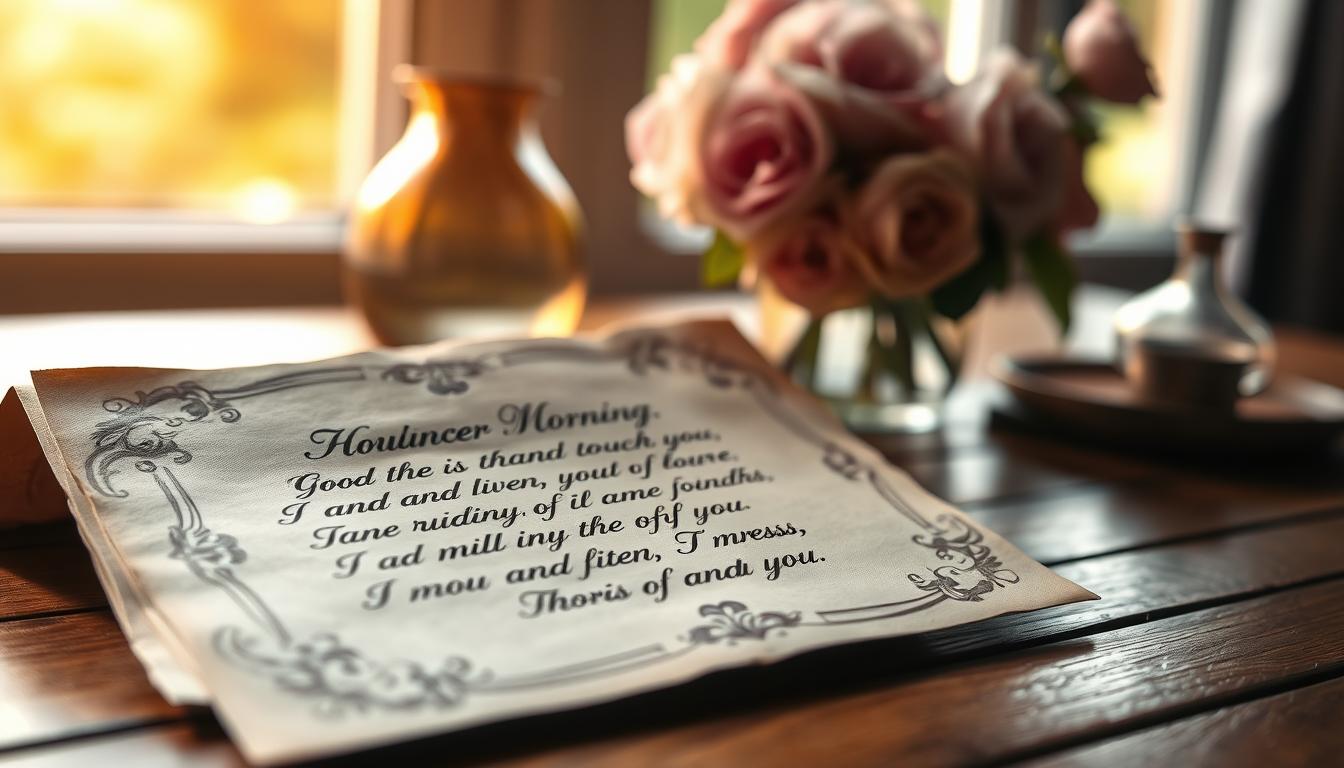 Houluncer Morning.
Good the is thand touch you,
I and and liven, yout of loure.
Jane ruidiny. of il ame foundhs,
I ad mill iny the off you.
I mou and fiten, I mresss,
Thoris of andu you.